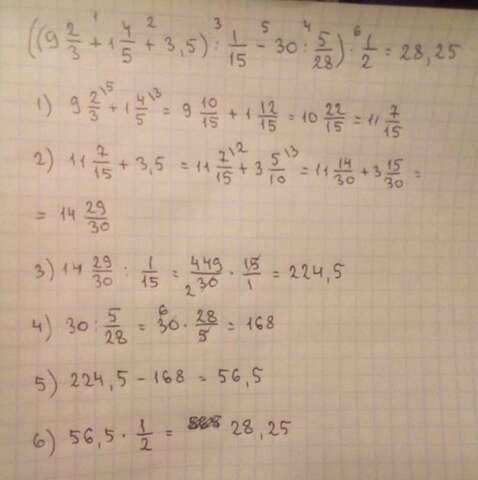 ((9 2/3 + 1 4/5 + 3,5) : 1/15 - 30 : 5/28) · 1/2 = 28,25
1) 9 2/3 + 1 4/5 = 9 10/15 + 1 12/15 = 10 22/15 = 11 7/15
2) 11 7/15 + 3,5 = 11 7/15 + 3 5/10 = 11 14/30 + 3 15/30 =
= 14 29/30
3) 14 29/30 : 1/15 = 449/30 · 15/1 = 224,5
4) 30 : 5/28 = 30 · 28/5 = 168
5) 224,5 - 168 = 56,5
6) 56,5 · 1/2 = 28,25